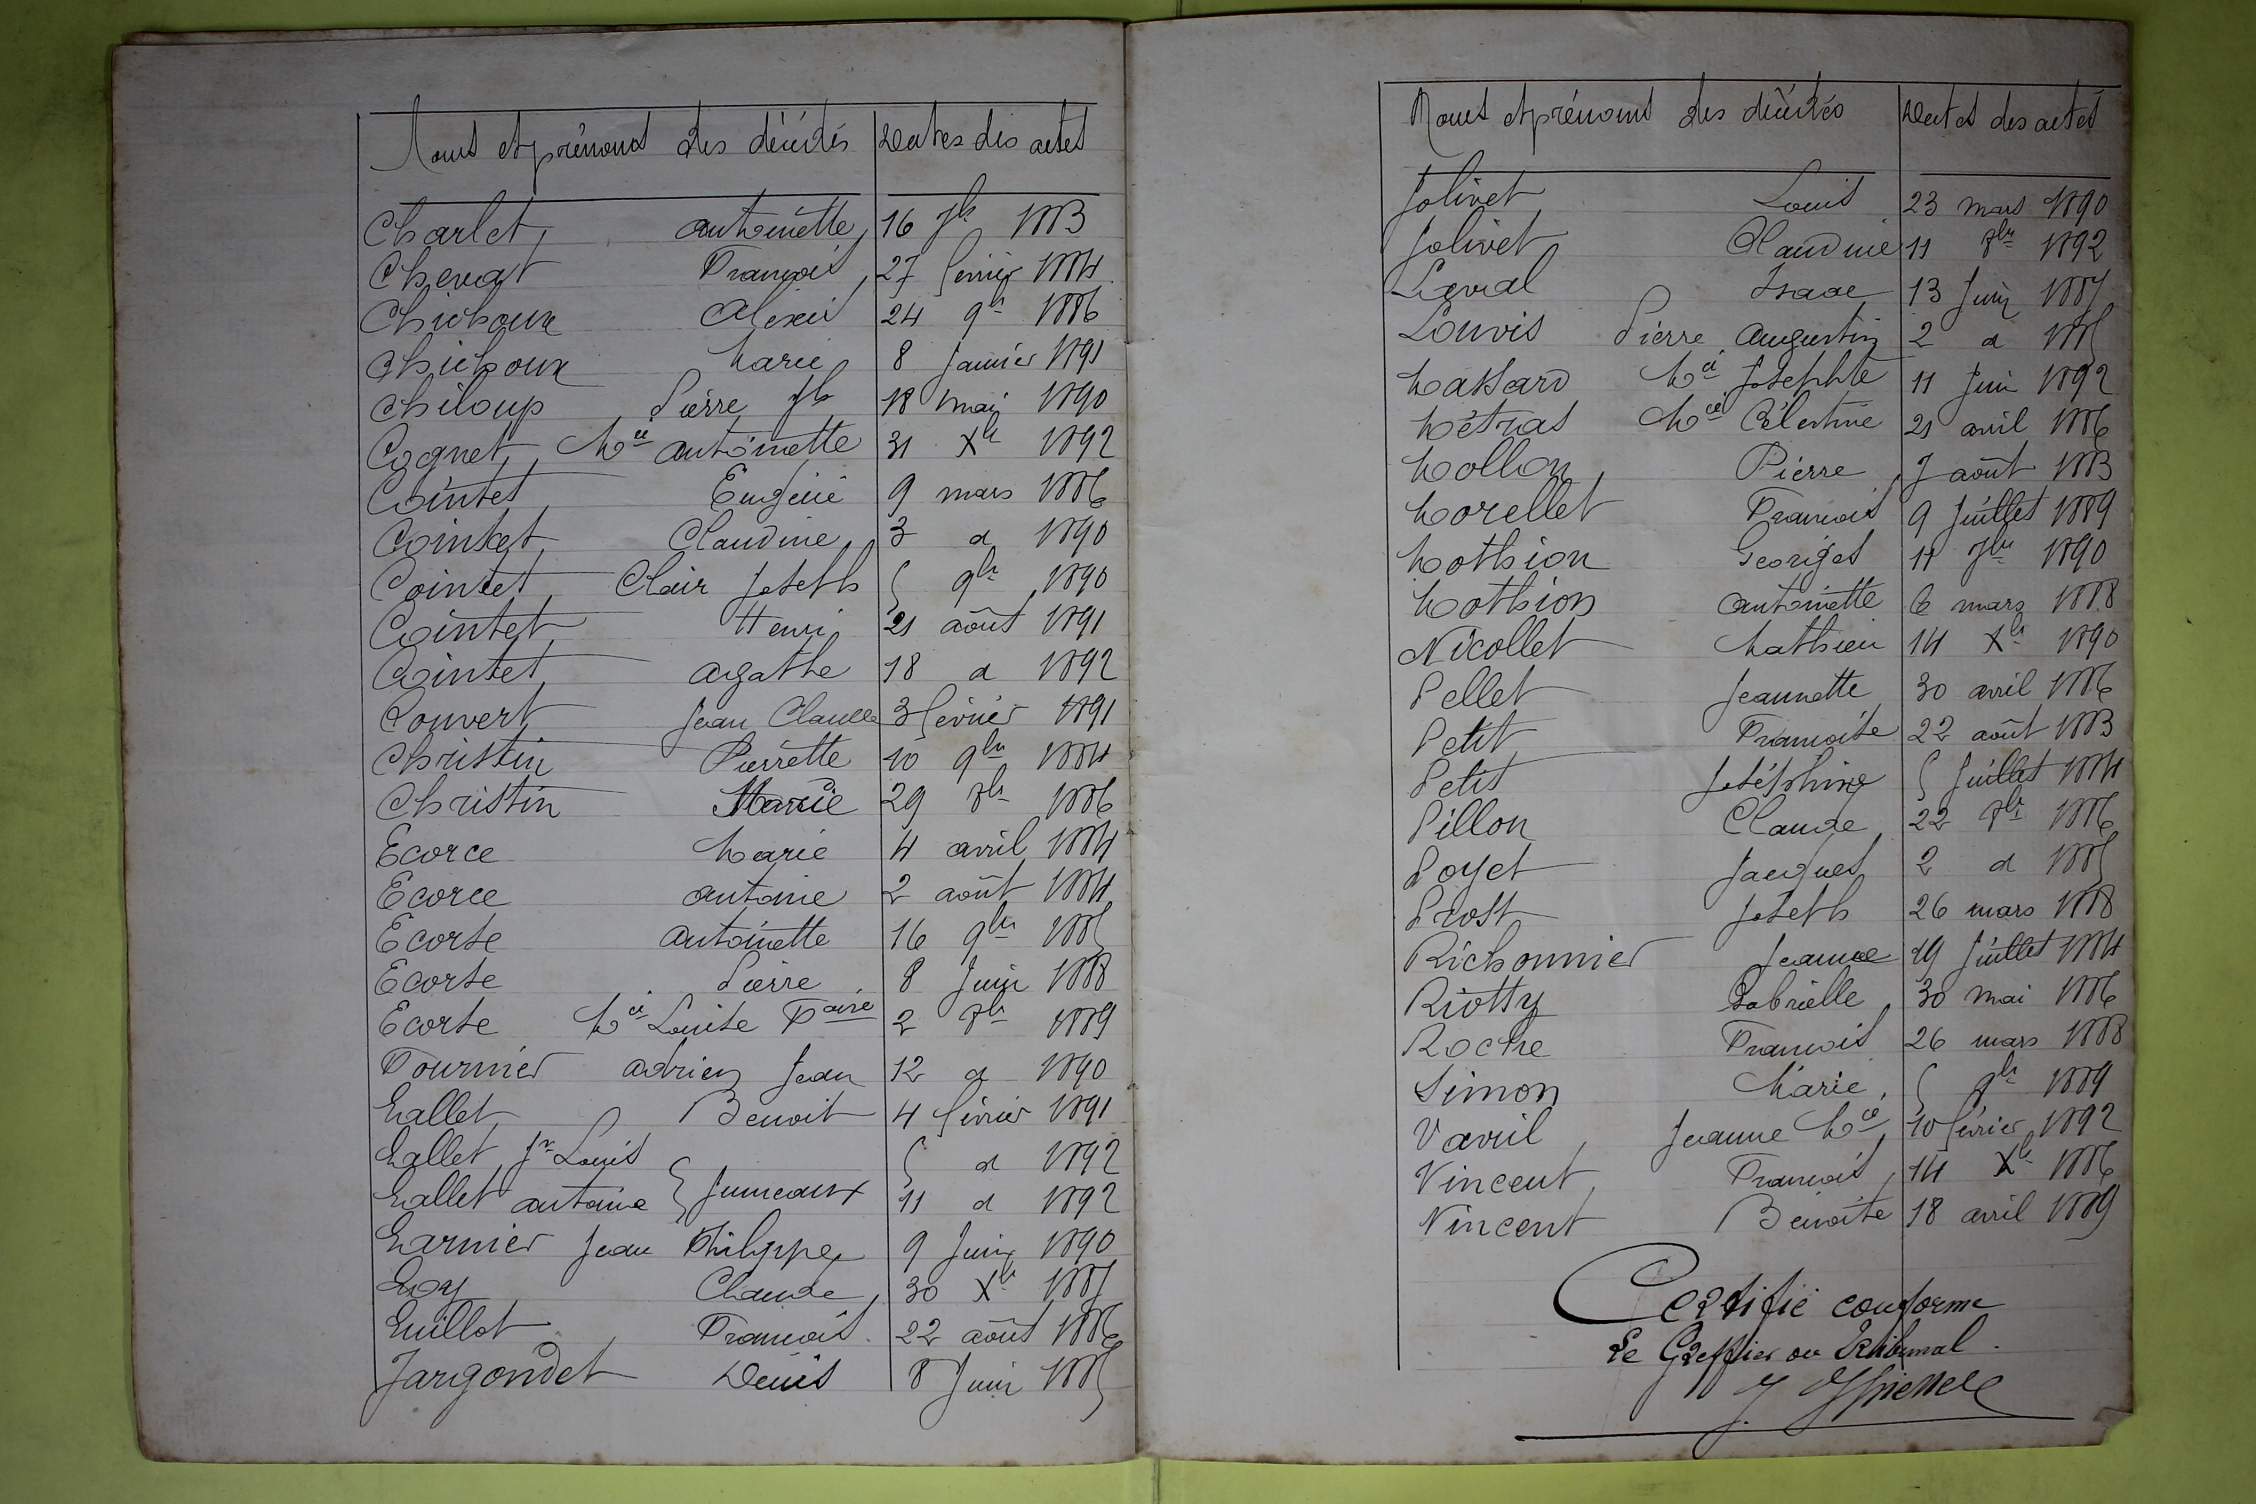 Noms et prénoms des décédés Dates des actes
Charlet Antoinette 16 7bre 1883
Chevat François 27 février 1884
Chichoux Alexis 24 9bre 1886
Chichoux Marie 8 Janvier 1891
Chiloup Pierre Jh 18 mai 1890
Cognet Mie Antoinette 31 Xbre 1892
Cointet Eugénie 9 mars 1886
Cointet Claudine 3 d 1890
Cointet Clair Joseph 5 9bre 1890
Cointet Henri 21 août 1891
Cointet Agathe 18 d 1892
Convert Jean Claude 3 février 1891
Christin Pierrette 10 9bre 1884
Christin Marie 29 8bre 1886
Ecorce Marie 4 avril 1884
Ecorce Antoine 2 août 1884
Ecorse Antoinette 16 9bre 1885
Ecorse Pierre 8 Juin 1888
Ecorse Mie Louise 2 8bre 1889
Fournier Adrien Jean 12 d 1890
Gallet Benoit 4 février 1891
Gallet Jn Louis } 5 d 1892
Gallet Antoine } Jumeaux 11 d 1892
Garnier Jean Philippe 9 Juin 1890
Goy Claude 30 Xbre 1887
Guillot François 22 août 1886
Jargondet Denis 8 Juin 1885
Noms et prénoms des décédés Dates des actes
Jolivet Louis 23 mars 1890
Jolivet Claudine 11 8bre 1892
Laval Isaac 13 Juin 1887
Louvis Pierre Augustin 2 d 1885
Massard Mie Josephte 11 Juin 1892
Métras Mie Célestine 21 avril 1886
Mollon Pierre 7 août 1883
Morellet François 9 Juillet 1889
Mothion Georges 11 7bre 1890
Mothion Antoinette 6 mars 1888
Nicollet Mathieu 14 Xbre 1890
Pellet Jeannette 30 avril 1886
Petit Françoise 22 août 1883
Petit Joséphine 5 Juillet 1884
Pillon Claude 22 8bre 1886
Poyet Jacques 2 d 1885
Prost Joseph 26 mars 1888
Richonnier Jeanne 19 Juillet 1884
Riotty Gabrielle 30 mai 1886
Roche François 26 mars 1888
Simon Marie 5 9bre 1889
Vavril Jeanne Mie 10 février 1892
Vincent François 14 Xbre 1886
Vincent Benoite 18 avril 1889
Certifié conforme
Le Greffier du Tribunal.